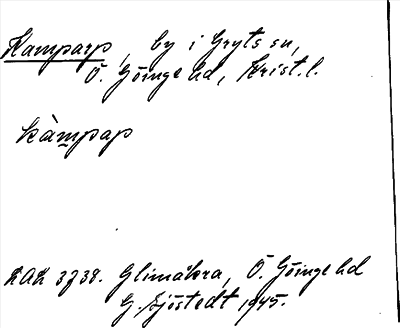 Kamparp, by i Gryts sn,
Ö. Göinge hd, Krist. l.
kàmpap
KAK 3738. Glimåkra, Ö. Göinge hd
G. Sjöstedt 1945.